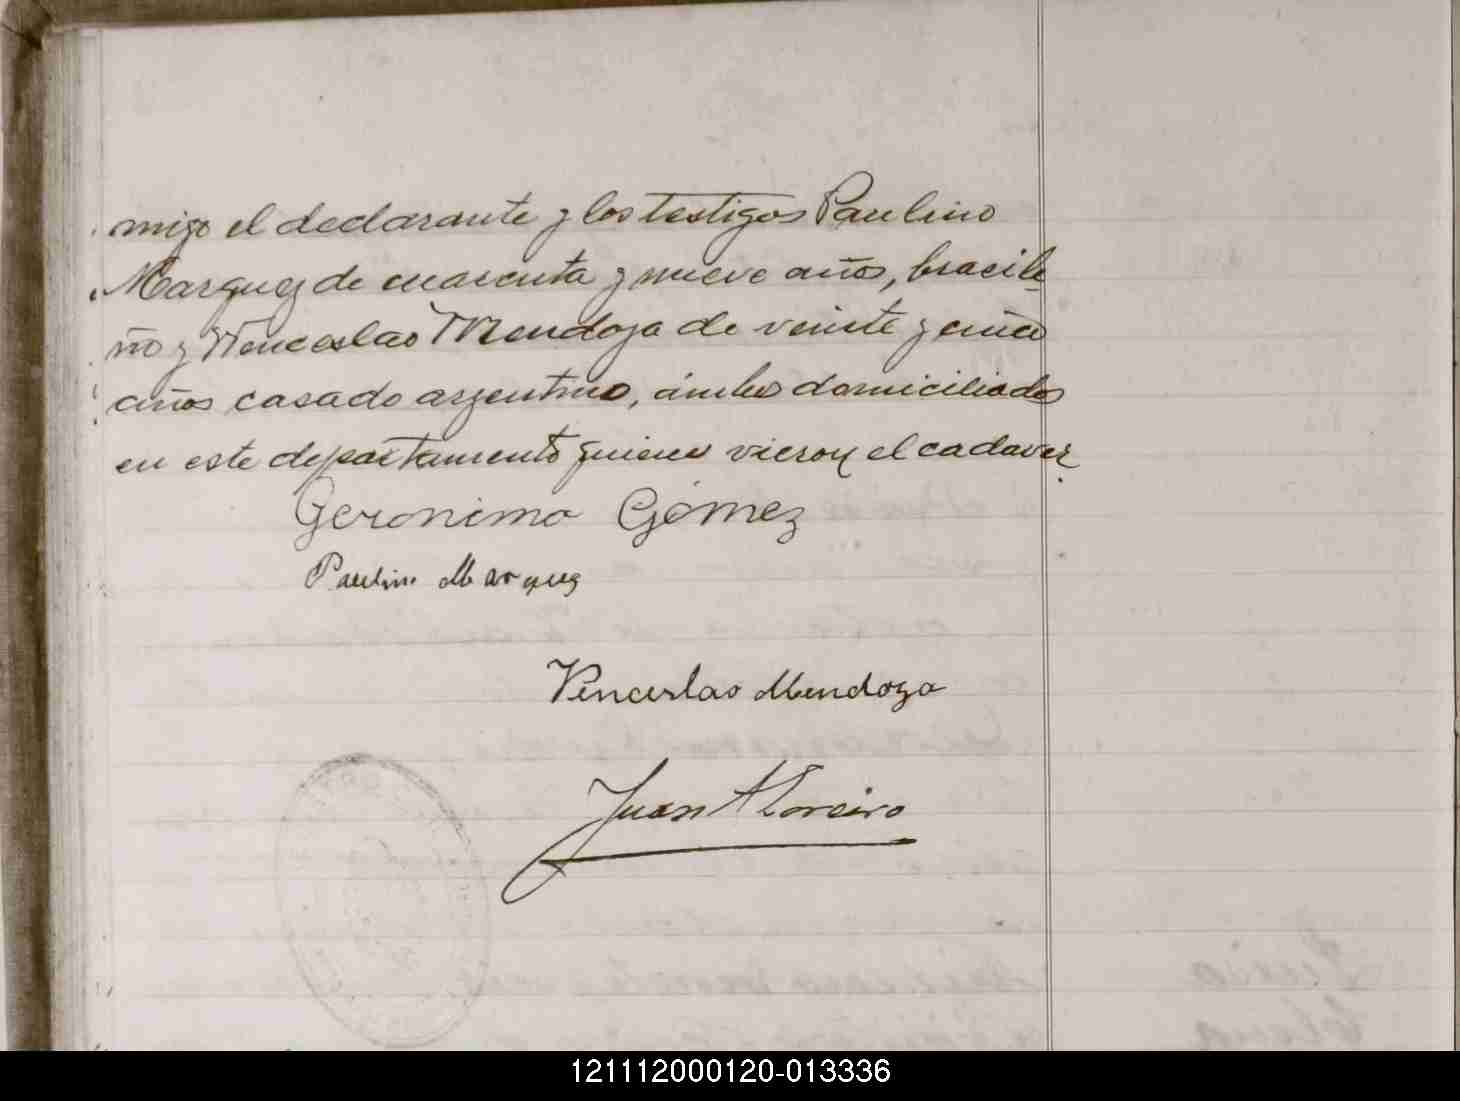 migo el declarante y los testigos Paulino
Marquez de cuarenta y nueve años, brasile-
ño y Wenceslao Mendoza de veinte y cinco
años casado argentino, ámbos domiciliados
en este departamento quienes vieron el cadaver
Geronimo Gómez
Paulino Marquez
Vencerlao Mendoza
Juan A Loreiro
121112000120-013336